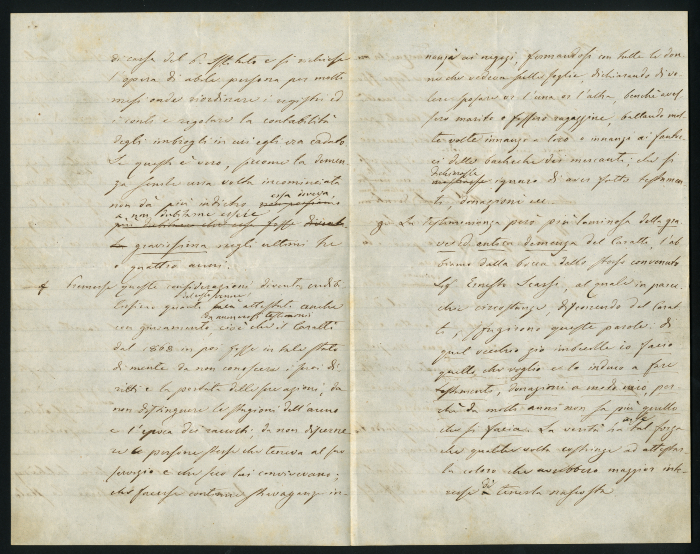 di cassa del P. Istituto e si richiese
l'opera di abile persona per molti
mesi onde riordinare i registri ed
i conti e regolare la contabilità
degli imbrogli in cui egli era caduto.
Se questo è vero, siccome la demen
za senile una volta incominciata
non dà più indietro essa doveva
a non dubitarne essere
più
gravissima negli ultimi tre
o quattro anni.
Premesse queste considerazioni diventa credib
lissimo quanto attestato anche
con giuramento da numerosi testimoni
cioè che il Caratti
dal 1868 in poi fosse in tale stato
di mente da non conoscere i suoi di
ritti e la portata delle sue azioni; da
non distinguere le stagioni dell'anno
e l'epoca dei raccolti; da non discerne
re le persone stesse che teneva al suo
servizio e che seco lui convivevano;
che facesse continue stravaganze in-
nanzi ai negozi, fermandosi con tutte le don
ne che vedeva sulla soglia, dichiarando di vo
lere sposare or l'una or l'altra, benchè aves
sero marito o fossero ragazzine, ballando mol
te volte innanzi a loro o innanzi ai fantoc
ci delle bacheche dei mercanti; che si
dichiarasse
ignaro di aver fatto testamen
to, donazioni ecc.
3o La testimonianza però più luminosa della gra
ve ed antica demenza del Caratti, l'ab
biamo dalla bocca dello stesso convenuto
Sig. Ernesto Scarsi, al quale in parec
chie circostanze, discorrendo del Carat
ti, sfuggirono queste parole: di
quel vecchio zio imbecille io faccio
quello che voglio e lo induco a fare
testamento, donazioni a modo mio, per
chè da molti anni non sa più quello
che si faccia. La verità ha tal forza
che qualche volta costringe ad attestar
la coloro che avrebbero maggior inte
resse di tenerla nascosta